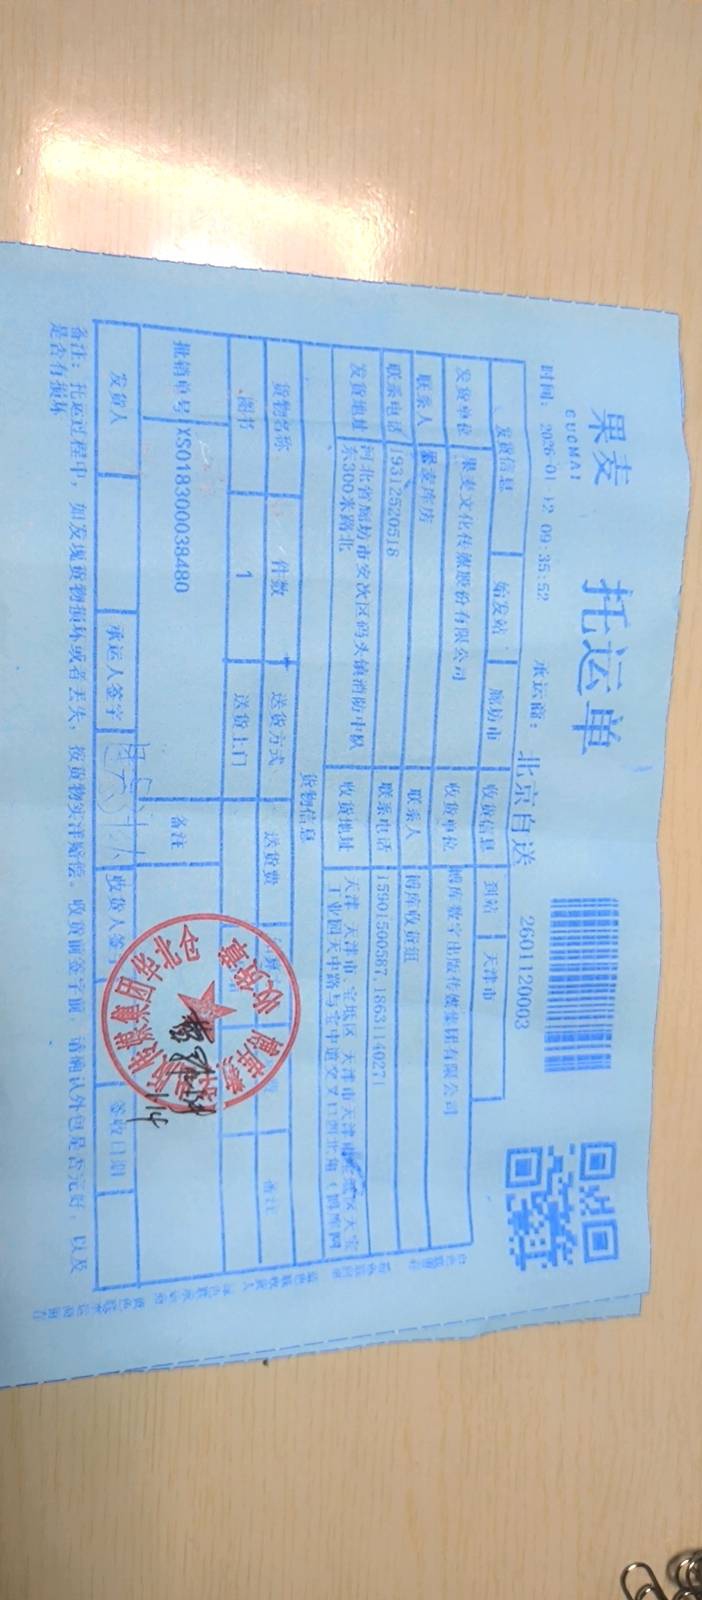 果麦
GUOMAI
托运单
时间: 2026-01-12 09:35:52
承运商: 北京自送
2601120003
发货信息 始发站 廊坊市 收货信息 到站 天津市
发货单位 果麦文化传媒股份有限公司 收货单位 博库数字出版传媒集团有限公司
联系人 果麦库房 联系人 博库收货组
联系电话 19312520518 联系电话 15901500587,18631140271
发货地址 河北省廊坊市安次区码头镇消防中队东300米路北 收货地址 天津 天津市 宝坻区 天津市天津市宝坻区天宝工业园天中路与宝中道交叉口西北角(博库网
货物信息
货物名称 件数 送货方式 送货费 备注
图书 1 送货上门
批销单号 XS018300038480 备注
发货人 承运人签字 收货人签字 签收日期
集团华北仓
收货章
1.14
备注: 托运过程中, 如发现货物损坏或者丢失, 按货物实洋赔偿。收货前签字前, 请确认外包是否完好, 以及
是否有损坏